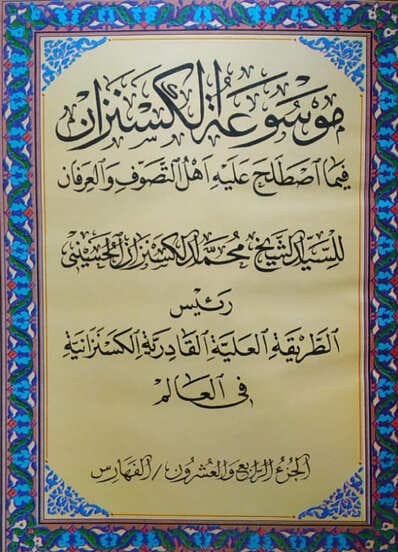 موسوعة الكسنزان
فيما اصطلح عليه أهل التصوف والعرفان
للسيد الشيخ محمد الكسنزان الحسيني
رئيس
الطريقة العلية القادرية الكسنزانية
في العالم
الجزء الرابع والعشرون / الفهارس